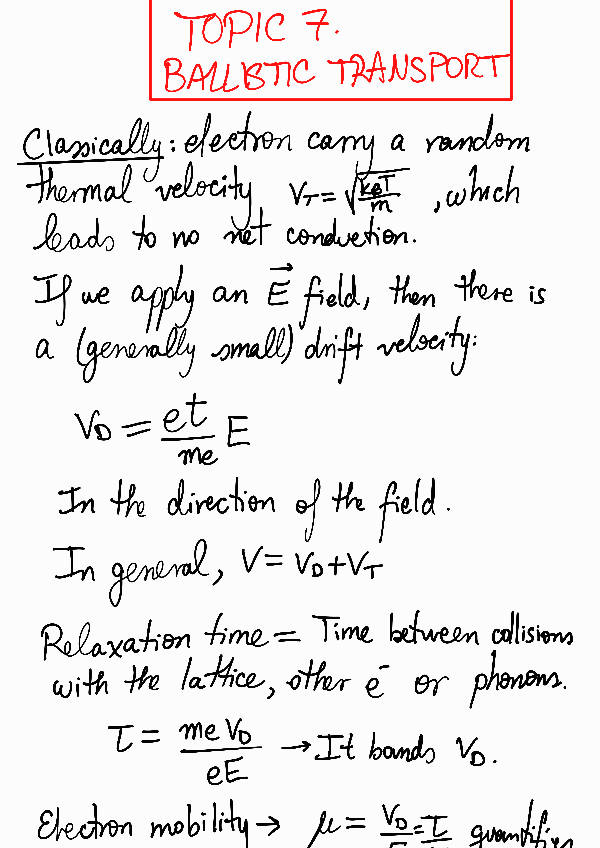 TOPIC 7.
BALLISTIC TRANSPORT
Classically: electron carry a random
thermal velocity V_T = √(k_BT/m) , which
leads to no net conduction.
If we apply an E⃗ field, then there is
a (generally small) drift velocity:
V_D = et/me E
In the direction of the field.
In general, V = V_D + V_T
Relaxation time = Time between collisions
with the lattice, other e⁻ or phonons.
τ = me V_D/eE → It bands V_D.
Electron mobility → μ = V_D = τ quantifies